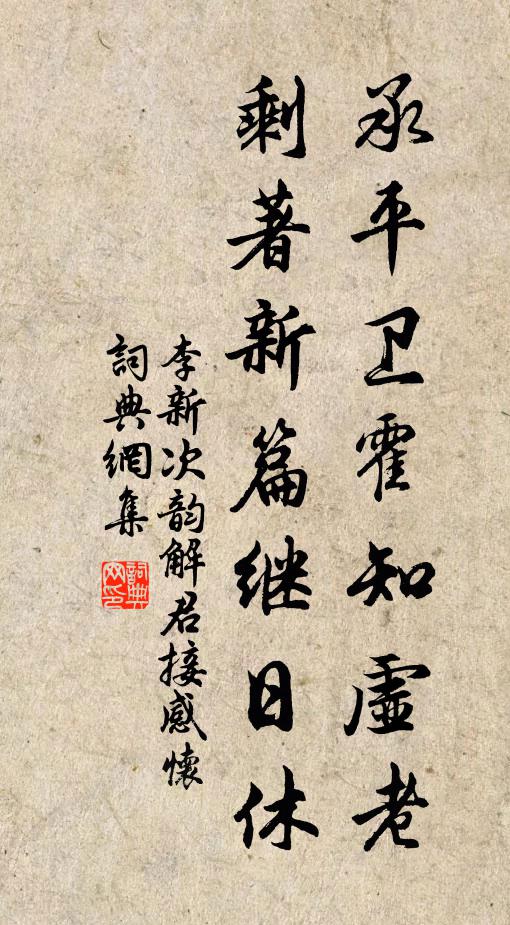 承平卫霍知虚老
剩著新篇继日休
李新次韵解君接感懷
詞典網集
詞典网印